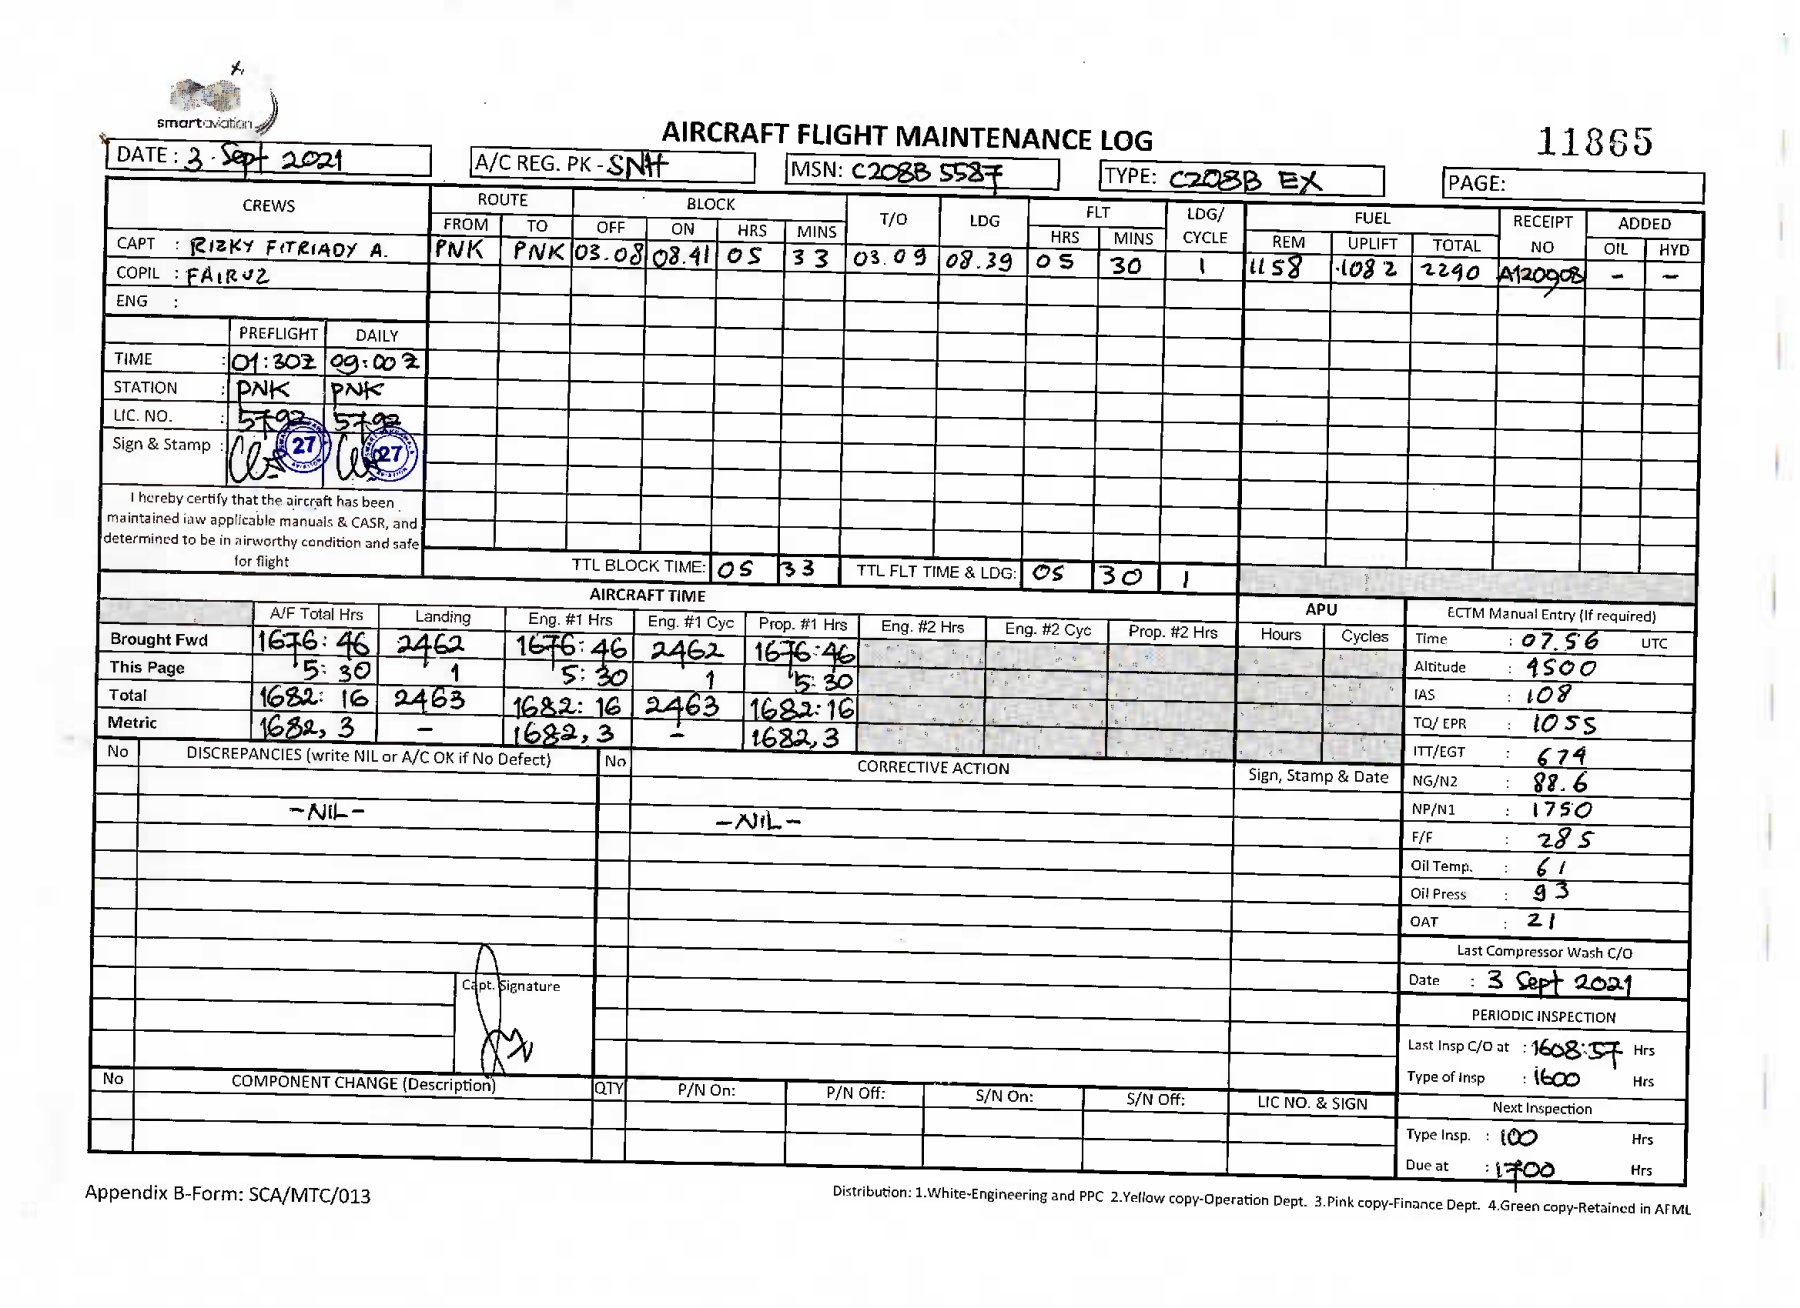 smartaviation
AIRCRAFT FLIGHT MAINTENANCE LOG
11865
DATE : 3 · Sept 2021
A/C REG. PK - SNH
MSN: C208B 5587
TYPE: C208B EX
PAGE:
CREWS
ROUTE BLOCK T/O LDG FLT LDG/ CYCLE FUEL RECEIPT NO ADDED
FROM TO OFF ON HRS MINS HRS MINS REM UPLIFT TOTAL OIL HYD
CAPT : RIZKY FITRIADY A.
PNK PNK 03.08 08.41 05 33 03.09 08.39 05 30 1 1158 1082 2240 A120908 - -
COPIL : FAIRUZ
ENG :
PREFLIGHT DAILY
TIME : 01:30Z 09:00Z
STATION : PNK PNK
LIC. NO. : 5792 5792
Sign & Stamp : 27 27
I hereby certify that the aircraft has been
maintained iaw applicable manuals & CASR, and
determined to be in airworthy condition and safe
for flight
TTL BLOCK TIME: 05 33 TTL FLT TIME & LDG: 05 30 1
AIRCRAFT TIME APU ECTM Manual Entry (If required)
A/F Total Hrs Landing Eng. #1 Hrs Eng. #1 Cyc Prop. #1 Hrs Eng. #2 Hrs Eng. #2 Cyc Prop. #2 Hrs Hours Cycles
Brought Fwd 1676:46 2462 1676:46 2462 1676:46
This Page 5:30 1 5:30 1 5:30
Total 1682:16 2463 1682:16 2463 1682:16
Metric 1682,3 - 1682,3 - 1682,3
Time : 07.56 UTC
Altitude : 9500
IAS : 108
TQ/ EPR : 1055
ITT/EGT : 674
NG/N2 : 88.6
NP/N1 : 1750
F/F : 285
Oil Temp. : 61
Oil Press : 93
OAT : 21
No DISCREPANCIES (write NIL or A/C OK if No Defect) No CORRECTIVE ACTION Sign, Stamp & Date
-NIL- -NIL-
Capt. Signature
Last Compressor Wash C/O
Date : 3 Sept 2021
PERIODIC INSPECTION
Last Insp C/O at : 1608:57 Hrs
Type of Insp : 1600 Hrs
Next Inspection
Type Insp. : 100 Hrs
Due at : 1700 Hrs
No COMPONENT CHANGE (Description) QTY P/N On: P/N Off: S/N On: S/N Off: LIC NO. & SIGN
Appendix B-Form: SCA/MTC/013
Distribution: 1.White-Engineering and PPC 2.Yellow copy-Operation Dept. 3.Pink copy-Finance Dept. 4.Green copy-Retained in AFML